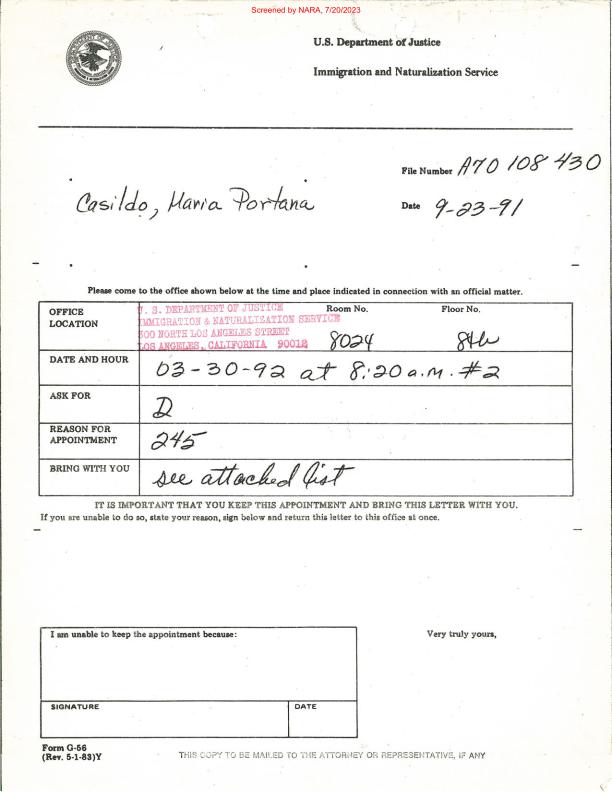 Screened by NARA, 7/20/2023
U.S. Department of Justice
Immigration and Naturalization Service
File Number A70 108 430
Casildo, Maria Portana
Date 9-23-91
Please come to the office shown below at the time and place indicated in connection with an official matter.
OFFICE LOCATION
U. S. DEPARTMENT OF JUSTICE
IMMIGRATION & NATURALIZATION SERVICE
300 NORTH LOS ANGELES STREET
LOS ANGELES, CALIFORNIA 90012
Room No. 8024
Floor No. 8th
DATE AND HOUR 03-30-92 at 8:20 a.m. #2
ASK FOR D
REASON FOR APPOINTMENT 245
BRING WITH YOU see attached list
IT IS IMPORTANT THAT YOU KEEP THIS APPOINTMENT AND BRING THIS LETTER WITH YOU.
If you are unable to do so, state your reason, sign below and return this letter to this office at once.
I am unable to keep the appointment because:
Very truly yours,
SIGNATURE DATE
Form G-56
(Rev. 5-1-83)Y
THIS COPY TO BE MAILED TO THE ATTORNEY OR REPRESENTATIVE, IF ANY